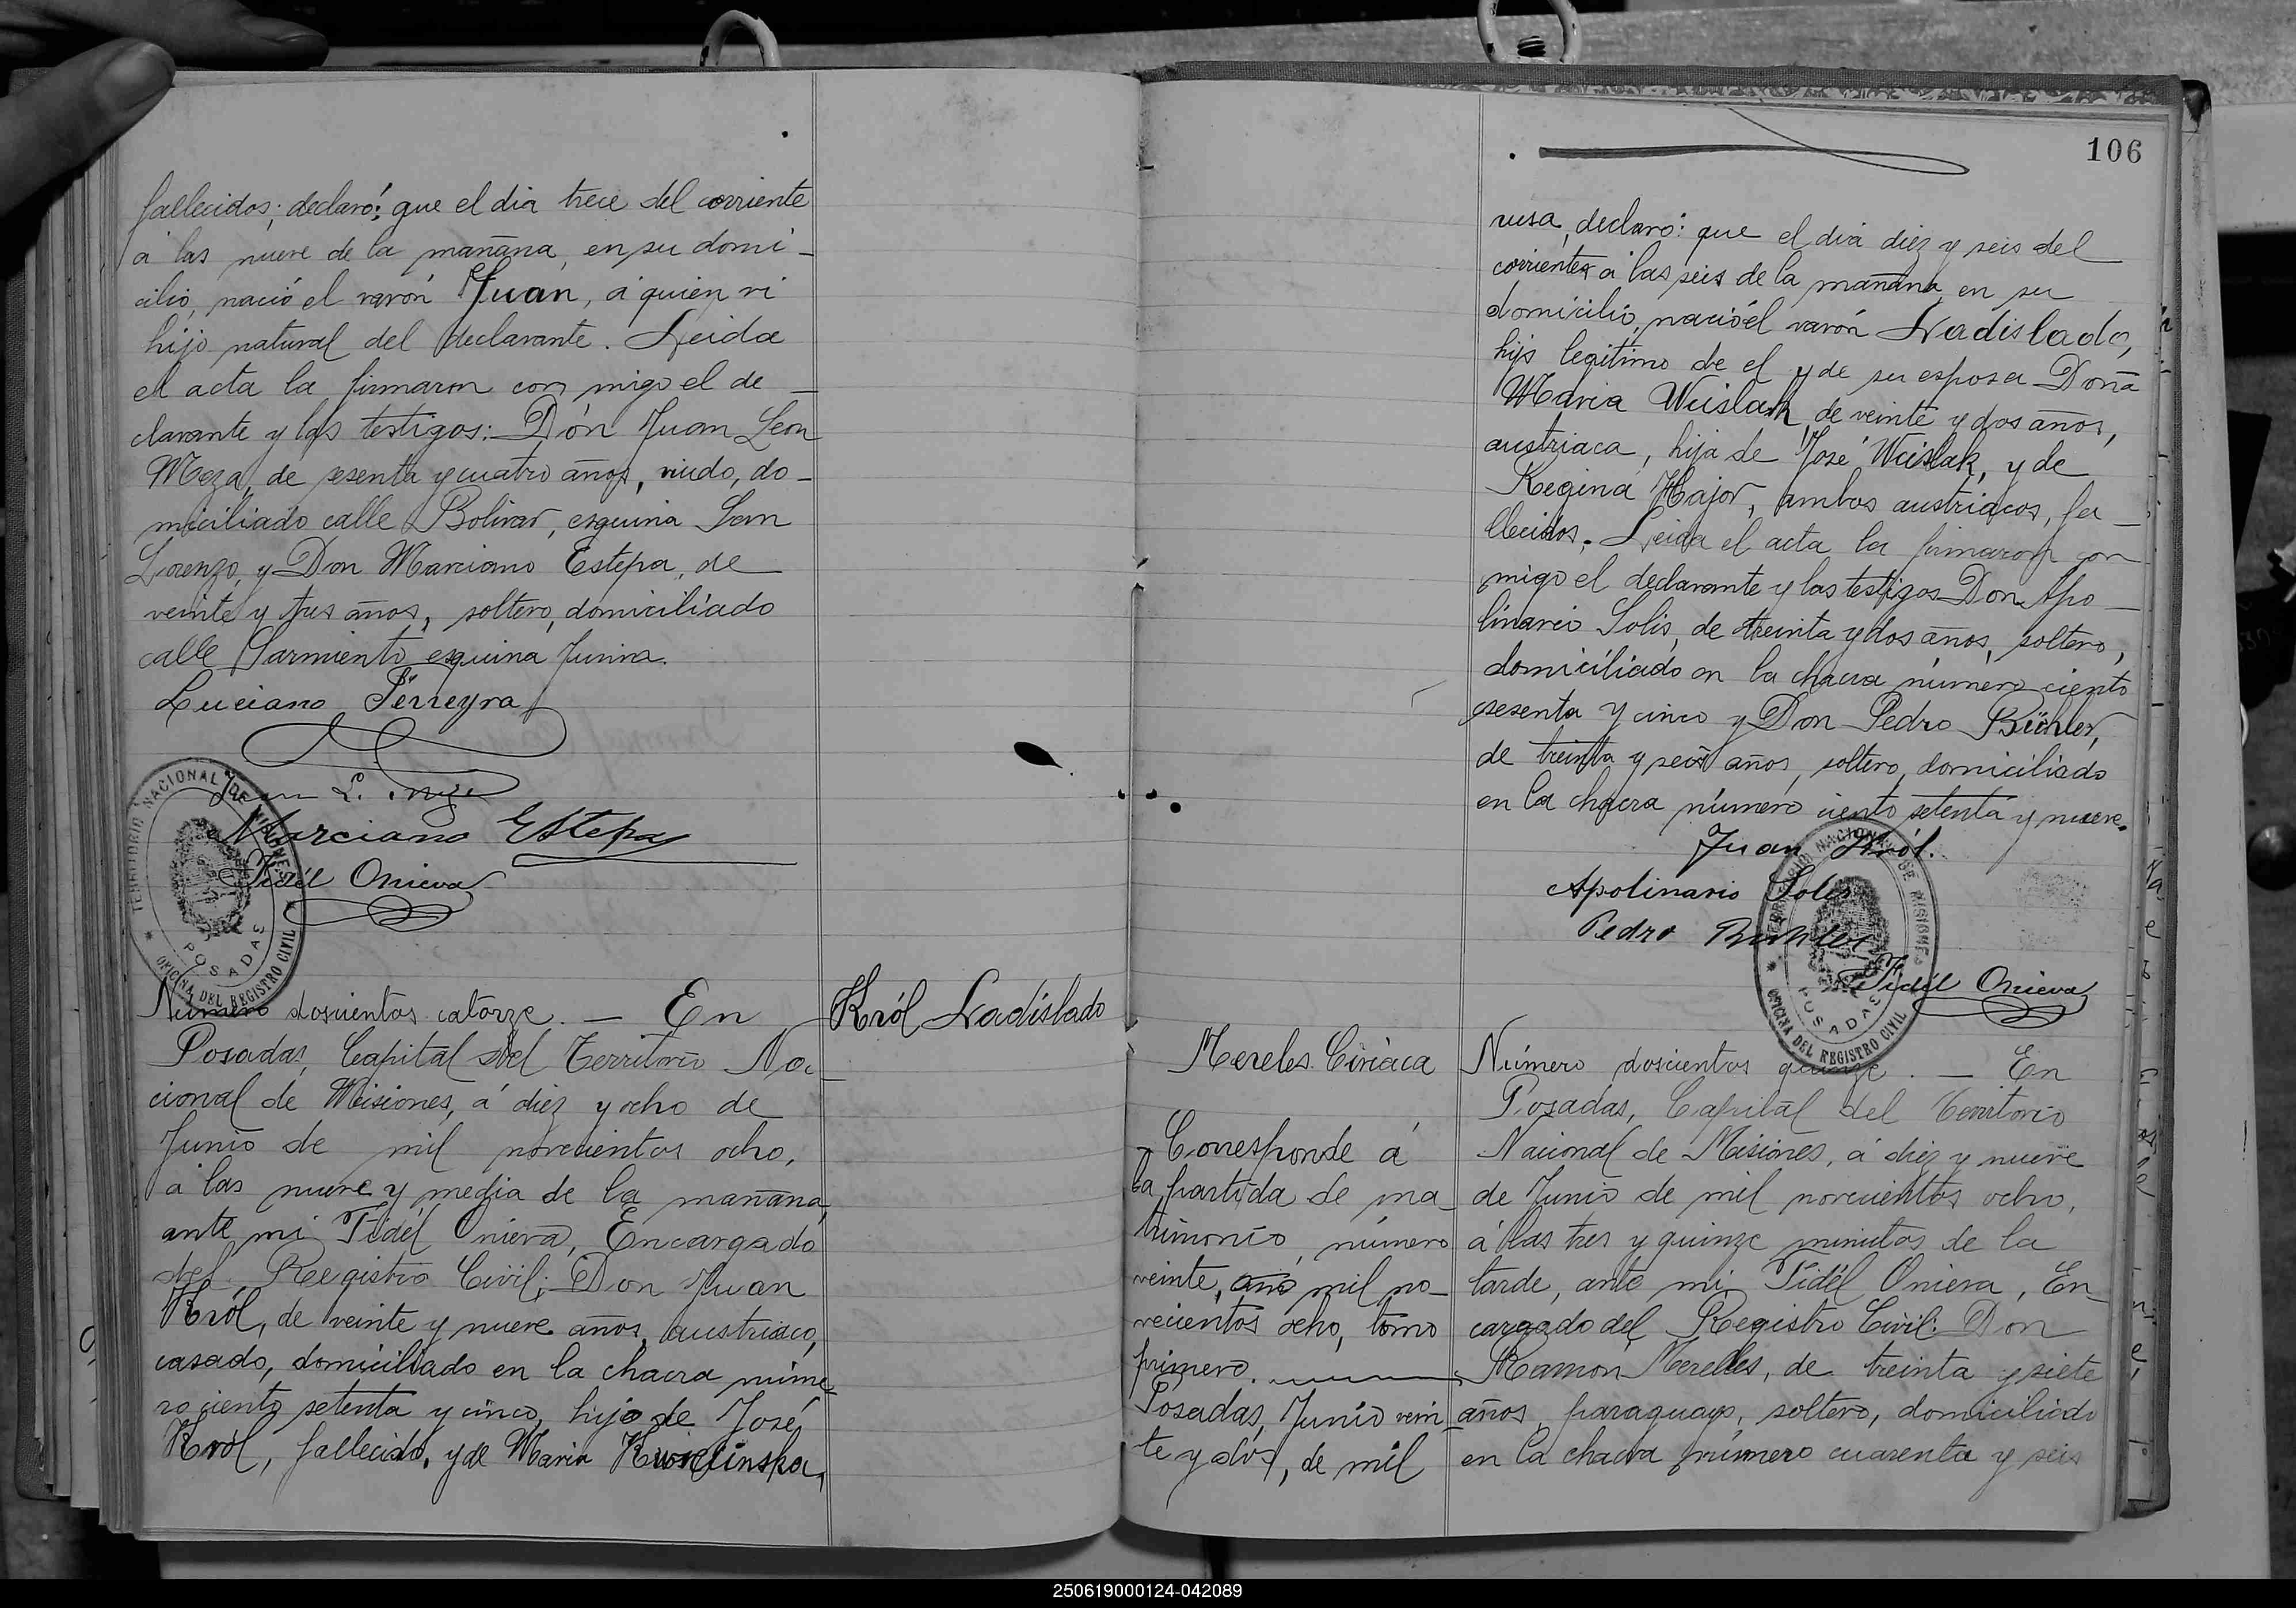 fallecidos; declaró: que el dia trece del corriente
á las nueve de la mañana, en su domi-
cilio, nació el varón Juan, á quien vi
hijo natural del declarante. Leida
el acta la firmaron con migo el de-
clarante y los testigos: Dón Juan Leon
Meza, de sesenta y cuatro años, viudo, do-
miciliado calle Bolivar, esquina San
Lorenzo, y Don Marciano Estepa, de
veinte y tres años, soltero, domiciliado
calle Sarmiento esquina Junin.
Luciano Perreyra
Juan L.
Marciano Estepa
Fidél Onieva
TERRITORIO NACIONAL DE MISIONES
POSADAS
OFICINA DEL REGISTRO CIVIL
Número doscientos catorze. — En
Posadas, Capital del Territorio Na-
cional de Misiones, á diez y ocho de
Junio de mil novecientos ocho,
á las nueve y media de la mañana,
ante mi Fidél Onieva, Encargado
del Registro Civil; Don Juan
Król, de veinte y nueve años, austriaco,
casado, domiciliado en la chacra núme-
ro ciento setenta y cinco, hijo de José
Król, fallecido, y de Maria
Król Ladislado
106
rusa, declaró: que el dia diez y seis del
corriente á las seis de la mañana, en su
domicilio, nació el varón Ladislado,
hijo legitimo de el y de su esposa Doña
Maria Wcislak, de veinte y dos años,
austriaca, hija de José Wcislak, y de
Regina Hajor, ambos austriacos, fa-
llecidos. Leida el acta la firmaron con
migo el declarante y los testigos Don Apo-
linario Solis, de treinta y dos años, soltero,
domiciliado en la chacra número ciento
sesenta y cinco y Don Pedro Bühler,
de treinta y seis años, soltero, domiciliado
en la chacra número ciento setenta y nueve.
Juan Król.
Apolinario Solis
Pedro Bühler
Fidél Onieva
TERRITORIO NACIONAL DE MISIONES
POSADAS
OFICINA DEL REGISTRO CIVIL
Mereles Ciriaca
Corresponde á
la partida de ma-
trimonio, número
veinte, año mil no-
vecientos ocho, tomo
primero.
Posadas, Junio vein-
te y dos, de mil
Número doscientos quinze. — En
Posadas, Capital del Territorio
Nacional de Misiones, á diez y nueve
de Junio de mil novecientos ocho,
á las tres y quinze minutos de la
tarde, ante mi Fidél Onieva, En-
cargado del Registro Civil: Don
Ramón Mereles, de treinta y siete
años, paraguayo, soltero, domiciliado
en la chacra número cuarenta y seis
250619000124-042089